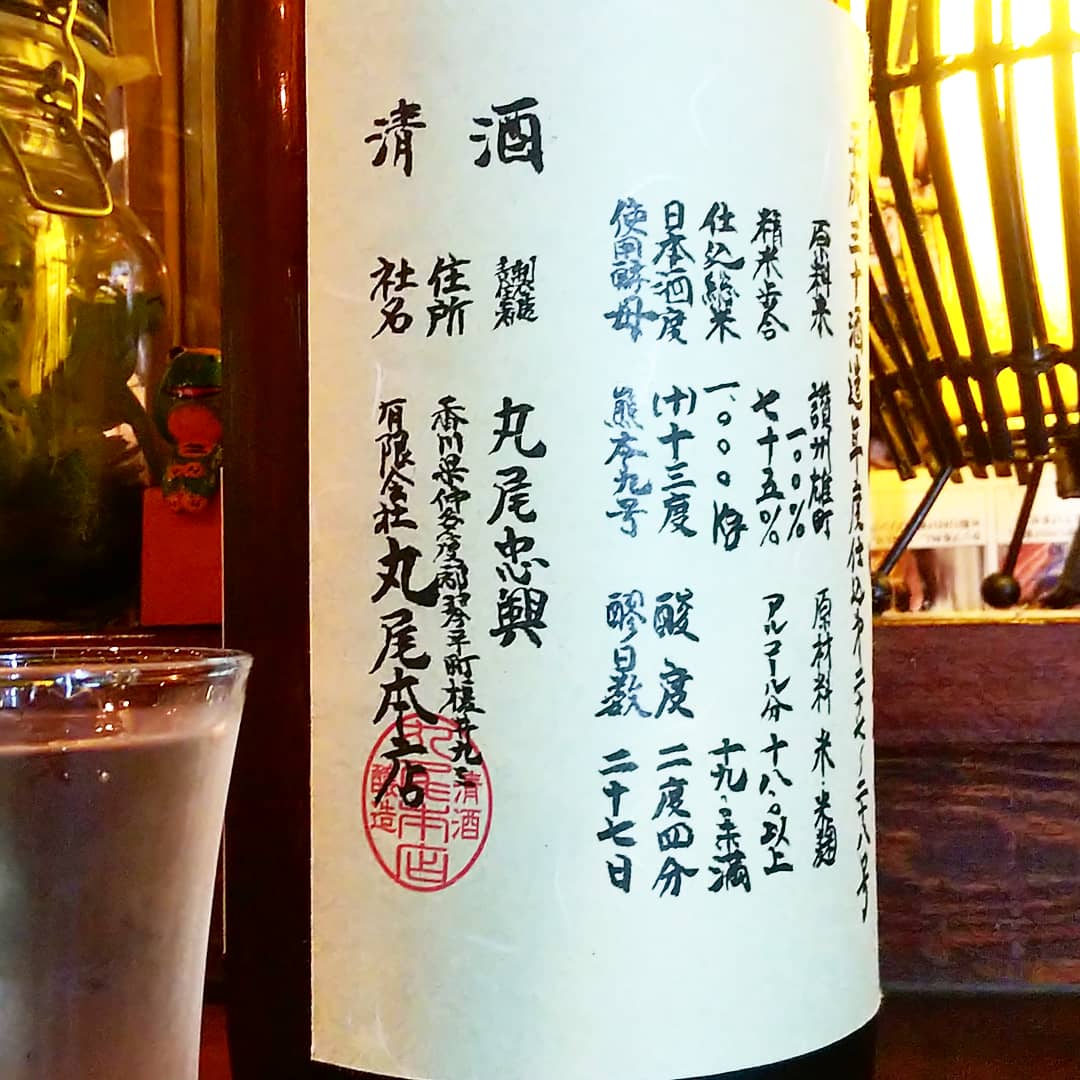 三十酒造年度仕込み第二十七〜二十八号
原料米 讃州雄町
一〇〇%
精米歩合 七十五%
仕込総米 一、〇〇〇瓩
日本酒度 (+)十三度
使用酵母 熊本九号
原材料 米・米麹
アルコール分 十八.〇以上
十九.〇未満
酸度 二度四分
醪日数 二十七日
清酒
製造責任者 丸尾忠興
住所 香川県仲多度郡琴平町榎井九三
社名 有限会社丸尾本店
清酒
丸尾本店
醸造